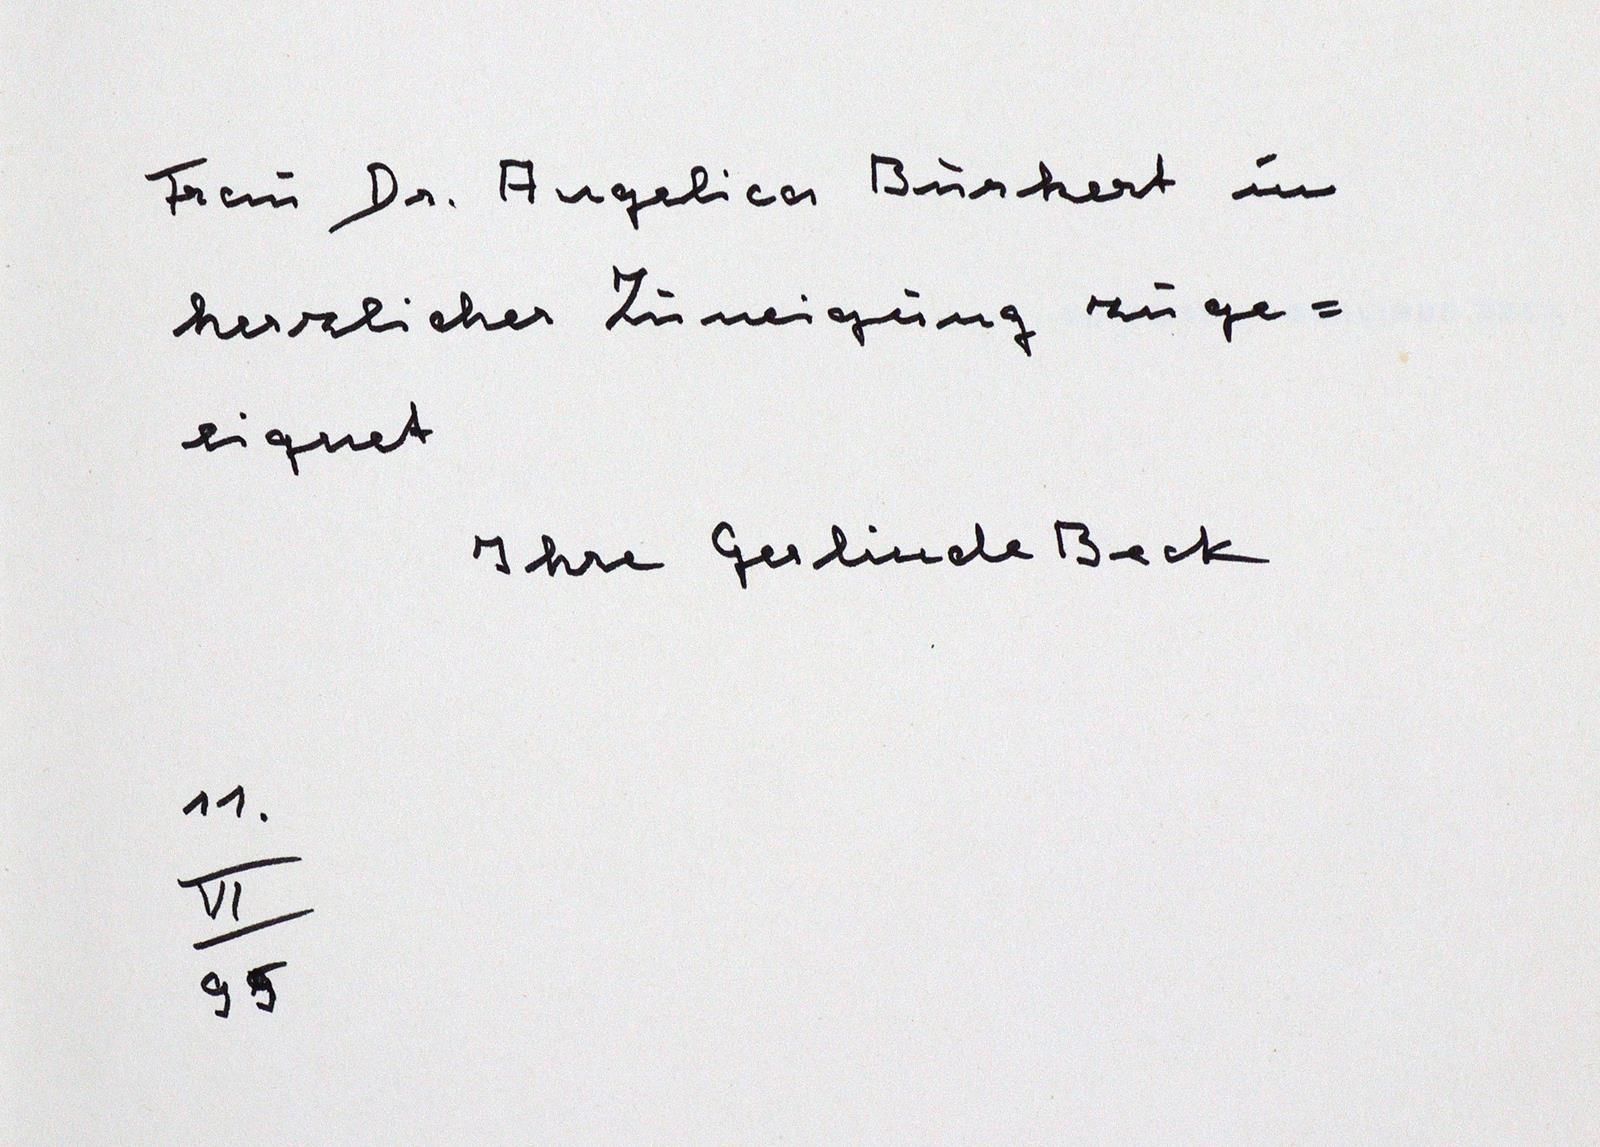 Frau Dr. Angelica Burkert in
herzlicher Zuneigung zuge=
eignet
Ihre Gerlinde Beck
11.
VI
95